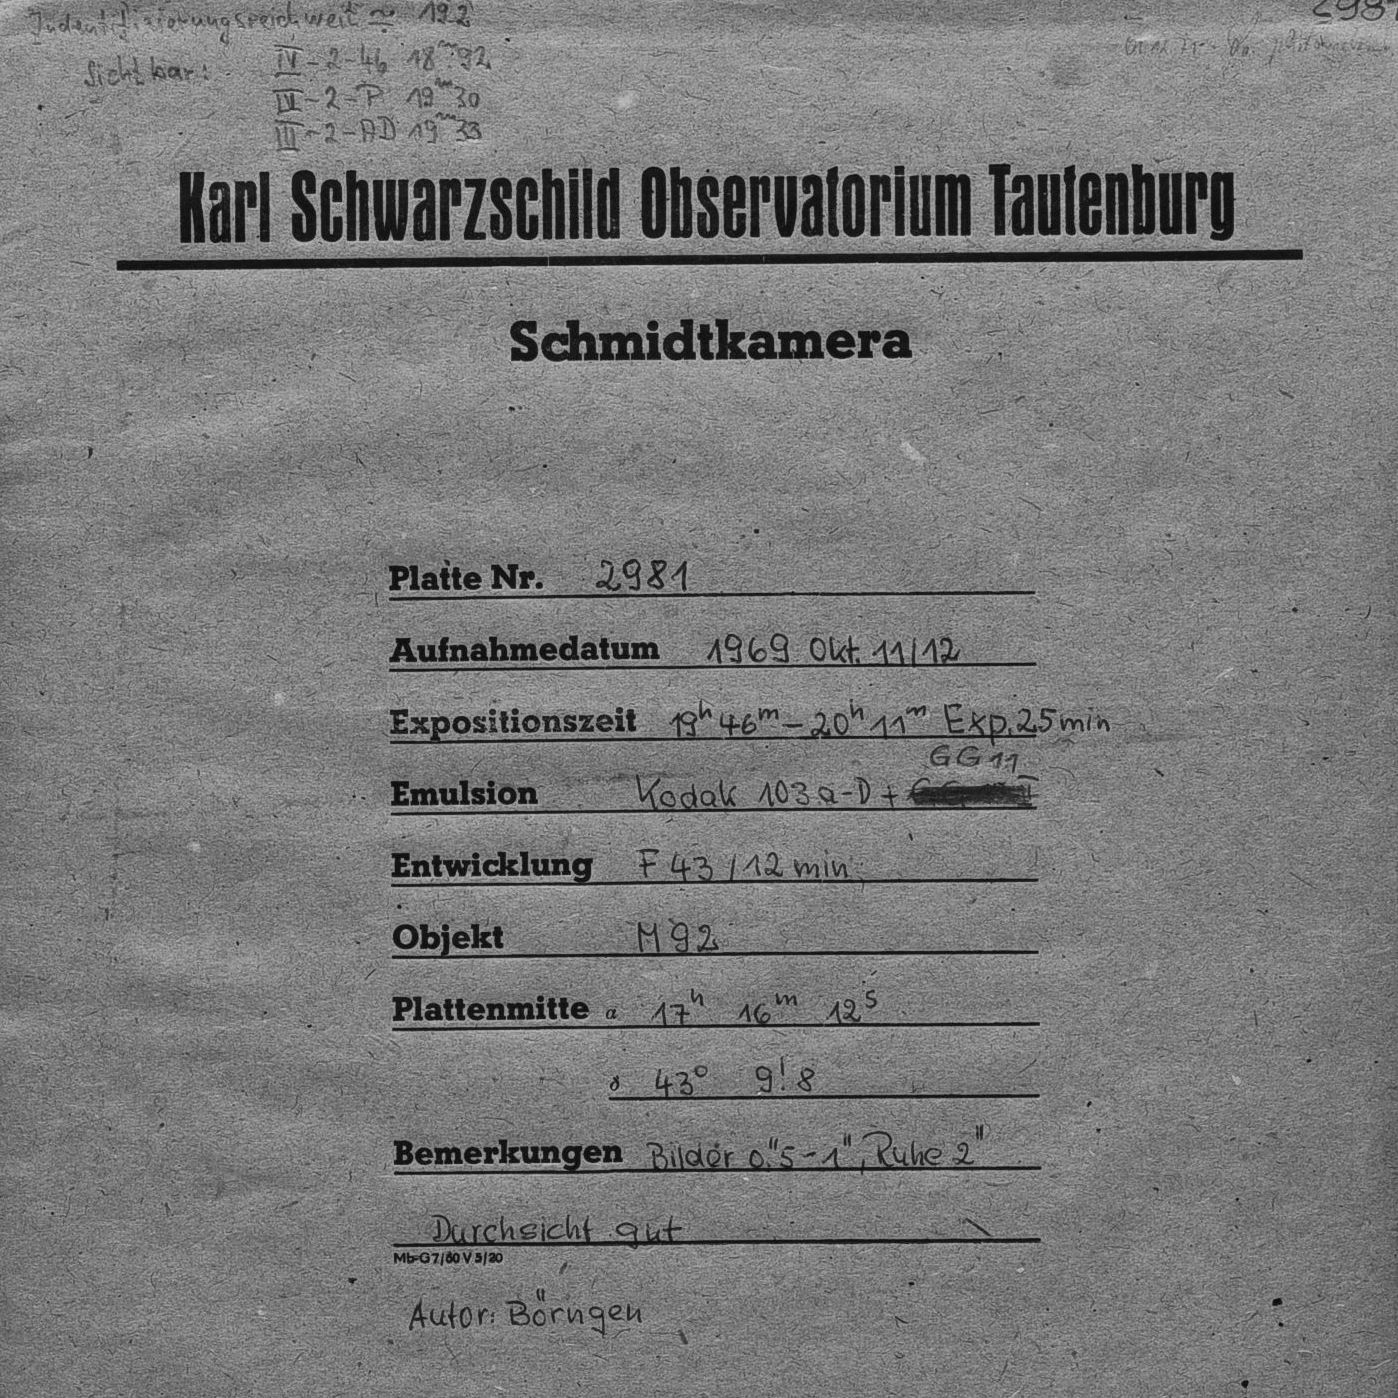 Indentifizierungsreichweite ≈ 19.2
Sichtbar: IV-2-46 18ᵐ.92
IV-2-P 19ᵐ30
III-2-AD 19ᵐ33
298
Karl Schwarzschild Observatorium Tautenburg
Schmidtkamera
Platte Nr. 2981
Aufnahmedatum 1969 Okt. 11/12
Expositionszeit 19ʰ46ᵐ-20ʰ11ᵐ Exp. 25min
GG11
Emulsion Kodak 103a-D+
Entwicklung F43/12min
Objekt M92
Plattenmitte α 17ʰ 16ᵐ 12ˢ
δ 43° 9!8
Bemerkungen Bilder 0."5-1", Ruhe 2"
Durchsicht gut
Mb-G7/60 V 5/20
Autor: Börngen